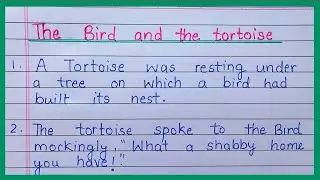 The Bird and the tortoise
1. A Tortoise was resting under
a tree on which a bird had
built its nest.
2. The tortoise spoke to the Bird
mockingly, "What a shabby home
you have!".